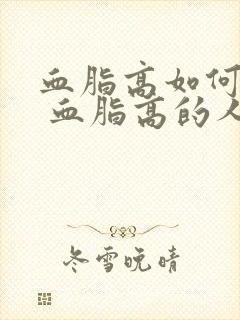 血脂高如何
血脂高的人
冬雪晚晴